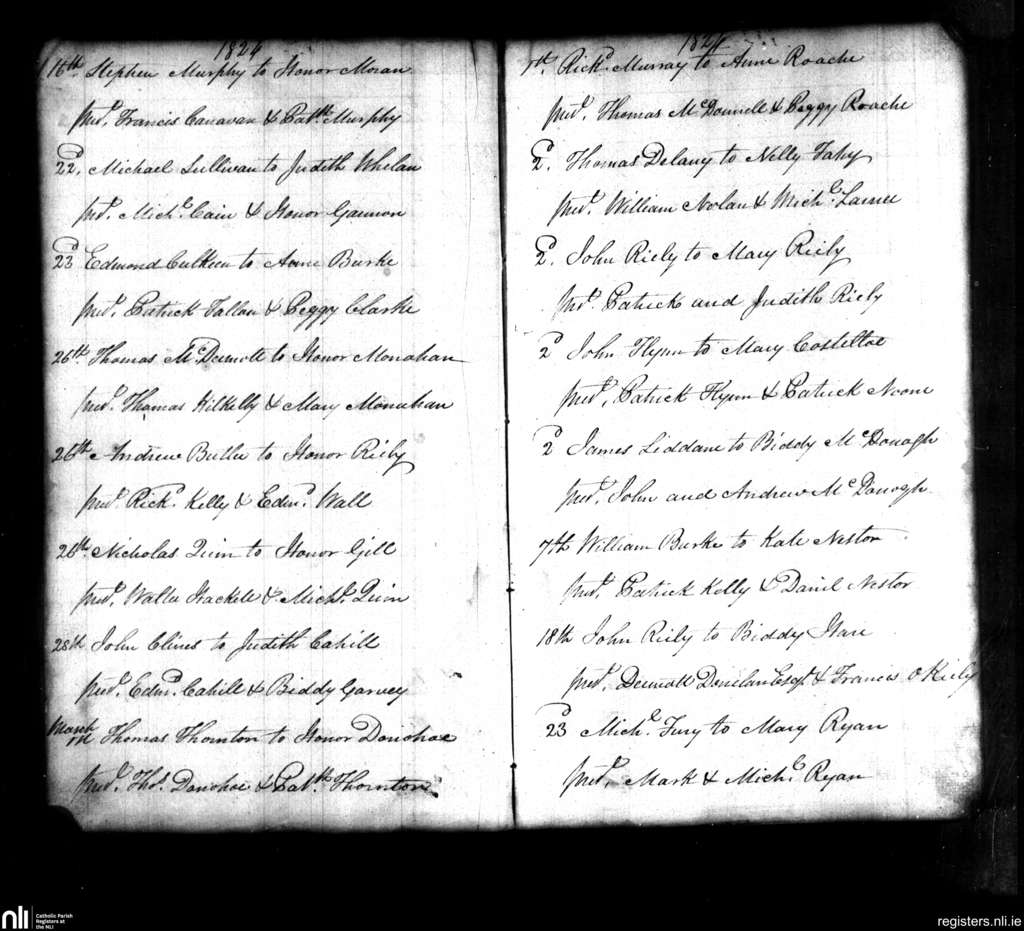 1824
16th Stephen Murphy to Honor Moran
pnt. Francis Canavan & Cath Murphy
22d, Michael Sullivan to Judith Whelan
pnt. Michl. Cain & Honor Gannon
23d Edmond Culkeen to Anne Burke
pnt. Patrick Fallon & Peggy Clarke
26th Thomas McDermott to Honor Monahan
pnt. Thomas Kilkelly & Mary Monahan
26th Andrew Butler to Honor Riely
pnt. Richd. Kelly & Edmd. Wall
26th. Nicholas Quin to Honor Gill
pnt. Walter Hackett & Michl. Quin
28th John Clines to Judith Cahill
pnt. Edmd. Cahill & Biddy Garvey
March
1st Thomas Thornton to Honor Donohoe
pnt. Ths. Donohoe & Cath. Thornton
1824
1st. Richd. Murray to Anne Roache
pnt. Thomas McDonnell & Peggy Roache
2d. Thomas Delany to Nelly Fahy
pnt. William Nolan & Michl.
2d. John Riely to Mary Riely
pnt. Patrick and Judith Riely
2d John Flynn to Mary Costelloe
pnt. Patrick Flynn & Patrick Noone
2d James Liddane to Biddy McDonagh
pnt. John and Andrew McDonogh.
7th William Burke to Kate Nestor
pnt. Patrick Kelly & Daniel Nestor
18th John Riely to Biddy Hare
pnt. Dermott Donelan Esqr. & Francis O Kiely
23d Michl. Fury to Mary Ryan
pnt. Mark & Michl Ryan
nli
Catholic Parish
Registers at
the NLI
registers.nli.ie